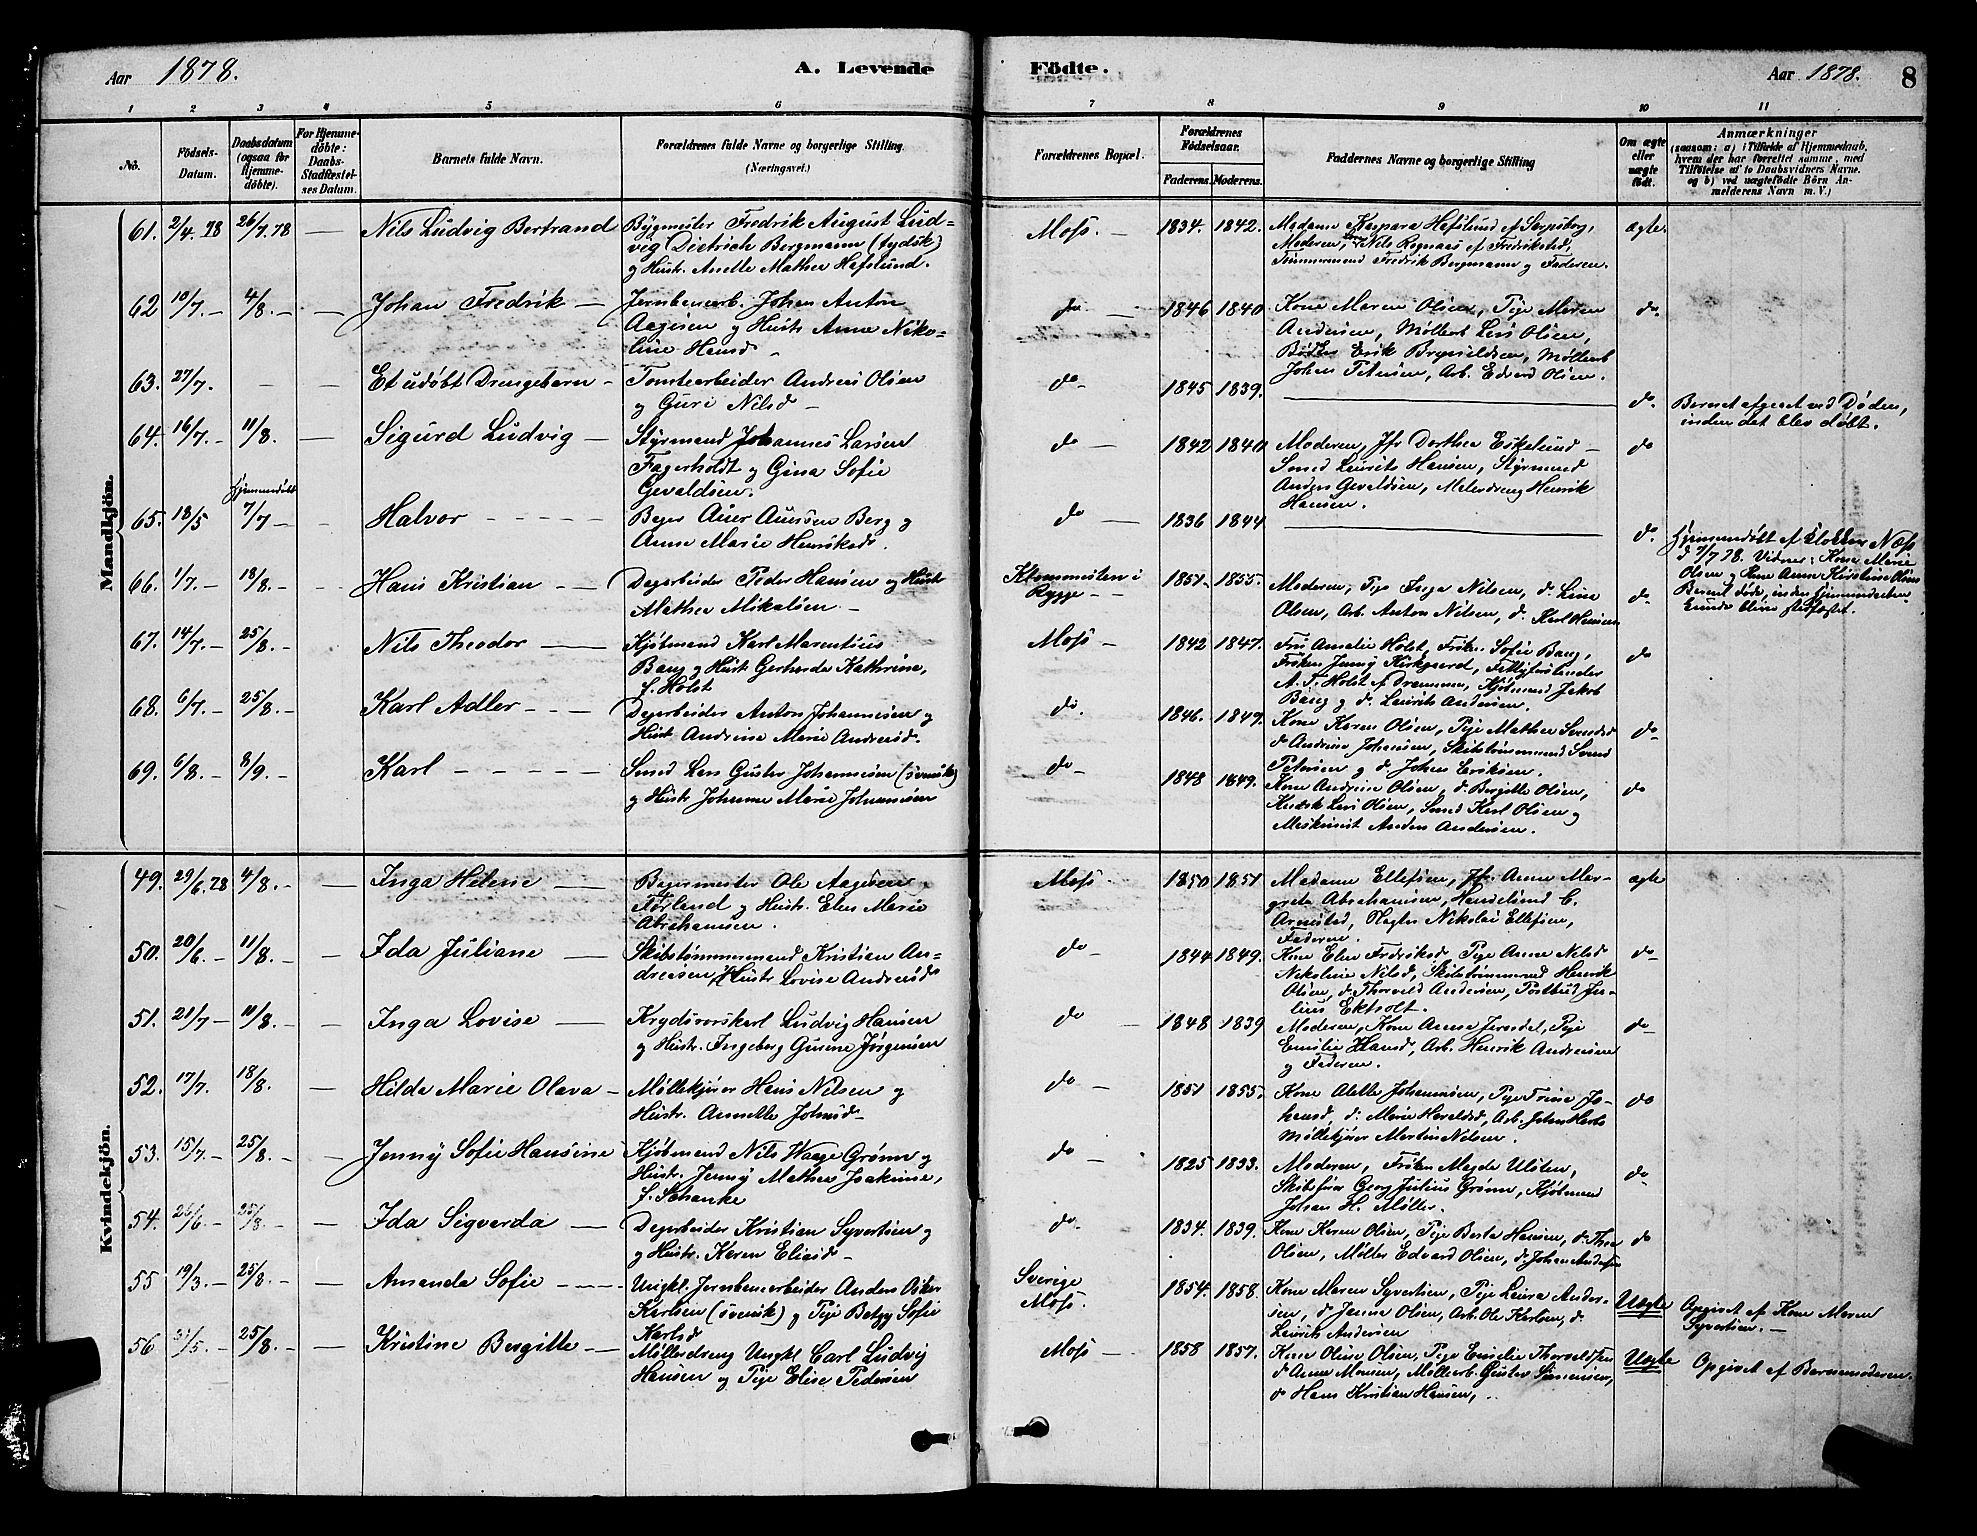 Aar 1878.
A. Levende
Fødte.
Aar 1878.
8
1 2 3 4 5 6 7 8 9 10 11
No.
Fødsels-
Datum.
Daabsdatum
(ogsaa for
Hjemme-
døbte).
For Hjemme-
døbte:
Daabs-
Stadfæstel-
ses Datum.
Barnets fulde Navn.
Forældrenes fulde Navne og borgerlige Stilling.
(Næringsvei.)
Forældrenes Bopæl.
Forældrenes
Fødselsaar.
Faderens. Moderens.
Faddernes Navne og borgerlige Stilling
Om ægte
eller
uægte
født.
Anmærkninger
(saasom: a) i Tilfælde af Hjemmedaab,
hvem der har forrettet samme, med
Tilføielse af to Daabsvidners Navne.
og b) ved uægtefødte Børn An-
melderens Navn m. V.)
Mandkjön.
61. 2/4. 78 26/7.78 — Nils Ludvig Bertrand
Bygmester Fredrik August Lud-
vig Dietrich Bergmann (tydsk)
og Hustr. Anette Mathea Hafslund.
Moss. 1834. 1842.
Madame Kaspara Hafslund af Sarpsborg,
Moderen, Nils Rognaas af Fredrikstad,
Tømmermand Fredrik Bergmann og Faderen.
ægte.
62 10/7.— 4/8.— — Johan Fredrik —
Jernbanearb. Johan Anton
Aagesen og Hustr. Anne Niko-
line Hansd —
do — 1846 1840
Kone Maren Olsen, Pige Maren
Andersen, Møllearb Lars Olsen,
Bødker Erik Brynildsen, Møllearb
Johan Petersen, Arb. Edvard Olsen.
do.
63. 27/7. — — Et udøbt Drengebarn —
Tomtearbeider Andreas Olsen
og Guri Nilsd —
do 1845 1839.
do. Barnet afgaaet ved Døden,
inden det blev døbt.
64. 16/7.— 11/8. — Sigurd Ludvig —
Styrmand Johannes Larsen
Fagerholdt og Gina Sofie
Gevaldsen.
do — 1842 1840
Moderen, Jfr Dorthea Eskelund —
Smed Laurits Hansen, Styrmand
Anders Gevaldsen, Malerdreng Henrik
Hansen.
do
65. 18/5 Hjemmedøbt
7/7 — Halvor
Bager
Anne Marie Henriksd.
do — 1836 1844
do. Hjemmedøbt af Klokker Næss
d 7/7 78. Vidner: Kone Marie
Olsen og Kone Anne Kirstine Olsen
Barnet døde, inden Hjemmedaaben
kunde blive stadfæstet.
66. 1/7.— 18/8.— Hans Kristian —
Dagarbeider Peder Hansen og Hustr
Mathea Mikalsen —
i
Rygge — 1851. 1855.
Moderen, Pige Inga Nilsen, do Line
Olsen, Arb. Anton Nilsen, do Karl Hansen
do.
67. 14/7.— 25/8.— Nils Theodor —
Kjøbmand Karl Marentius
Bang og Hustr. Gerharda Kathrine,
f. Holst
Moss — 1842 1847.
Fru Amalie Holst, Frøken Sofie Bang,
Frøken Jenny Kirkgaard,
A. T. Holst af Drammen, Kjøbmand Jakob
Bang og do Laurits Andersen.
do
68. 6/7.— 25/8.— Karl Adler —
Dagarbeider Anton Johannesen og
Hustr. Andrine Marie Andersd.
do. 1846. 1849.
Kone Karen Olsen, Pige Mathea Svendsd
do Andrine Johansen, Skibstømmermand Svend
Petersen og do Johan Eriksen.
do
69. 6/8. 8/9.— Karl —
Smed Lars Gustav Johannesen (svensk)
og Hustr Johanne Marie Johannesen
do — 1848 1849.
Kone Andrine Olsen, do Bergitte Olsen,
Kudsk Lars Olsen, Smed Karl Olsen og
Maskinist Anders Andersen.
do
Kvindekjön.
49. 29/6.78 4/8.— — Inga Helene —
Bagermester Ole Aagesen
Førland og Hustr. Elen Marie
Abrahamsen.
Moss — 1850 1851
Madame Ellefsen, Jfr. Anne Mar-
grete Abrahamsen, Handelsmd C.
Arnestad, Slagter Nikolai Ellefsen,
Faderen.
ægte
50. 20/6.— 11/8.— — Ida Juliane —
Skibstømmermand Kristian An-
dreasen, Hustr Lovise Andersd
do — 1844 1849.
Kone Elen Fredriksd, Pige Anne Nilsd
Nikoline Nilsd, Skibstømmermd Henrik
Olsen, do Thorvald Andersen, Postbud Ju-
lius Ekholt.
do —
51. 21/7 — 10/8.— — Inga Lovise —
Ludvig Hansen
og Hustr. Ingeborg Gurine Jørgensen
do — 1848 1839
Moderen, Kone Anna Pige
Emilie Hansd, Arb. Henrik Andersen
og Faderen.
do
52. 17/7. 18/8. — Hilda Marie Olava —
Møllekjører Hans Nilsen og
Hustr. Annette Johnsd —
do — 1851 1855.
Kone Alette Johannesen, Pige Trine Jo-
hansd, do Marie Haraldsd, Arb.
Møllekjører Martin Nilsen.
do
53. 15/7.— 25/8.— — Jenny Sofie Hansine
Kjøbmand Nils Waage Grønn og
Hustr. Jenny Mathea Joakime,
f. Schanke
do — 1825 1833.
Moderen, Frøken Magda Ulsten,
Skibsfører Georg Julius Grønn, Kjøbmand
Johan H. Møller.
do
54. 26/6 — 25/8.— — Ida Sigverda —
Dagarbeider Kristian Syvertsen og
og Hustr. Karen Eliasd —
do. 1834. 1839.
Kone Karen Olsen, Pige Berta Hansen, do Thea
Olsen, Møller Edvard Olsen, do Johan Andersen
do
55 19/3.— 25/8.— — Amanda Sofie —
Ungkl. Jernbanearbeider Anders Oskar
Karlsen (svensk) og Pige Betzy Sofie
Karlsd
Sverige
Moss. 1854. 1858.
Kone Maren Syvertsen, Pige Laura Ander-
sen, do Janna Olsen, Arb. Ole Karlsen, do
Laurits Andersen
Uægte Opgivet af Kone Maren
Syvertsen. —
56 31/5.— 25/8.— — Kristine Bergitte —
Møllerdreng Ungkl Carl Ludvig
Hansen og Pige Elise Pedersen
Moss — 1858 1857.
Kone Oline Olsen, Pige Emilie Thorvaldsen
do Anne Monsen, Møllearb. Gustav
do Hans Kristian Hansen,
Uægte Opgivet af Barnemoderen.